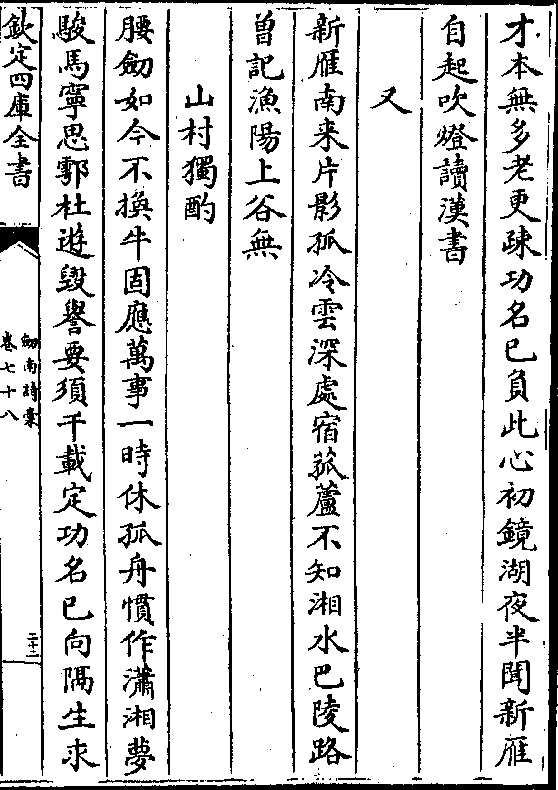 才本無多老更疎功名已負此心初鏡湖夜半聞新雁
自起吹燈讀漢書
又
新雁南来片影孤冷雲深處宿菰蘆不知湘水巴陵路
曽記漁陽上谷無
山村獨酌
腰劒如今不換牛固應萬事一時休孤舟慣作瀟湘夢
駿馬寧思鄠杜遊毀譽要須千載定功名已向隔生求
欽定四庫全書
劒南詩稾
卷七十八
二十二